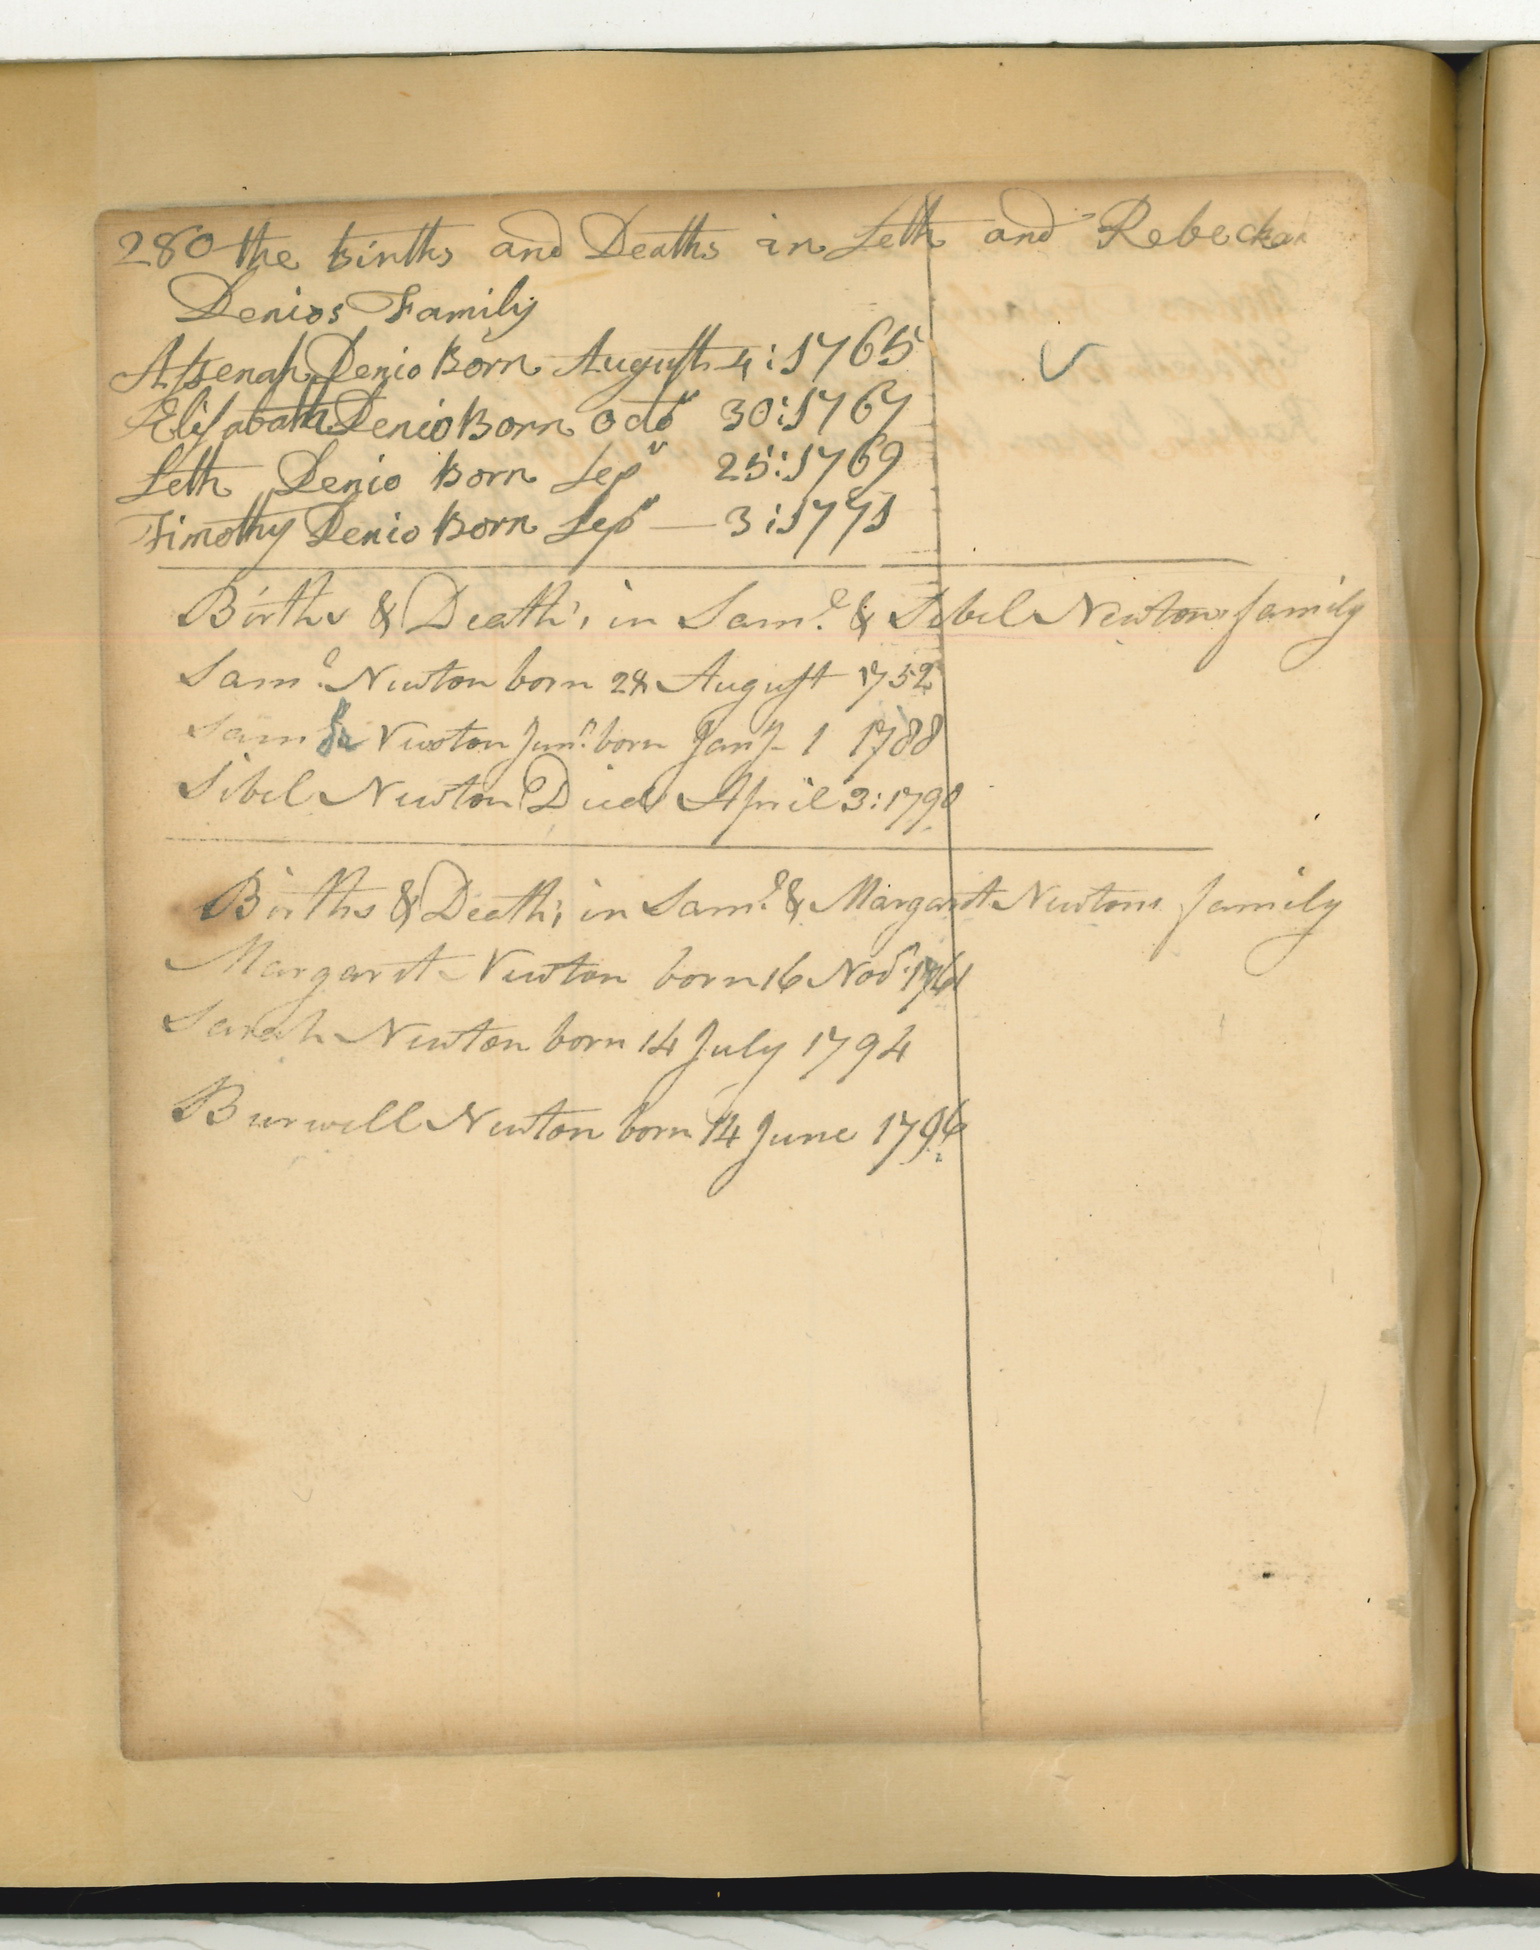 280 the births and Deaths in Seth and Rebeckah
Denios Family
Assenah Denio Born August 4:1765
Elisabath Denio Born Octbr 30:1767
Seth Denio Born Sepr 25:1769
Timothy Denio Born Sepr — 3:1771
Births & Death's in Saml. & Sibel Newtons family
Saml. Newton born 28 August 1752
Saml Newton Junr. born Jany 1 1788
Sibel Newton Died April 3:1790
Births & Death's in Saml. & Margaret Newtons family
Margaret Newton born 16 Novr. 1761
Sarah Newton born 14 July 1794
Burwell Newton born 14 June 1796